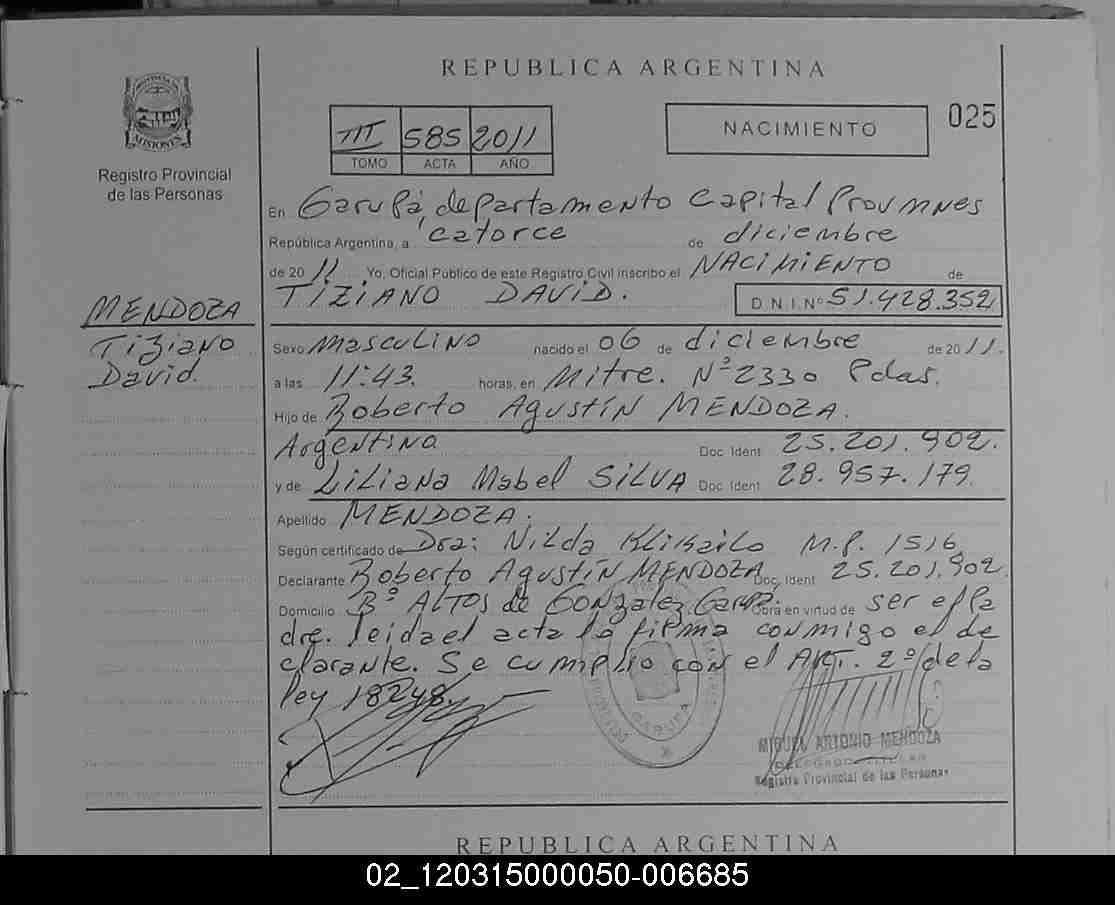 REPUBLICA ARGENTINA
PROVINCIA DE
MISIONES
Registro Provincial
de las Personas
III 585 2011
TOMO ACTA AÑO
NACIMIENTO
025
En Garupá, departamento Capital Prov Mnes
República Argentina, a catorce de diciembre
de 2011 Yo, Oficial Público de este Registro Civil inscribo el NACIMIENTO de
TIZIANO DAVID. D.N.I.Nº 51.428.352
MENDOZA
Tiziano
David.
Sexo Masculino nacido el 06 de diciembre de 2011.
a las 11:43. horas, en Mitre. Nº 2330 Pdas.
Hijo de Roberto Agustín MENDOZA.
Argentino Doc Ident 25.201.902.
y de Liliana Mabel SILVA Doc Ident 28.957.179.
Apellido MENDOZA.
Según certificado de Dra: Nilda M.P. 1516
Declarante Roberto Agustín MENDOZA Doc. Ident 25.201.902.
Domicilio Bº ALTOS de GONZALEZ Garupá. Obra en virtud de ser el Pa
dre. leida el acta la firma conmigo el de
clarante. Se cumplio con el ART. 2º de la
ley 18248.
GARUPA
MIGUEL ANTONIO MENDOZA
DELEGADO TITULAR
Registro Provincial de las Personas
REPUBLICA ARGENTINA
02_120315000050-006685